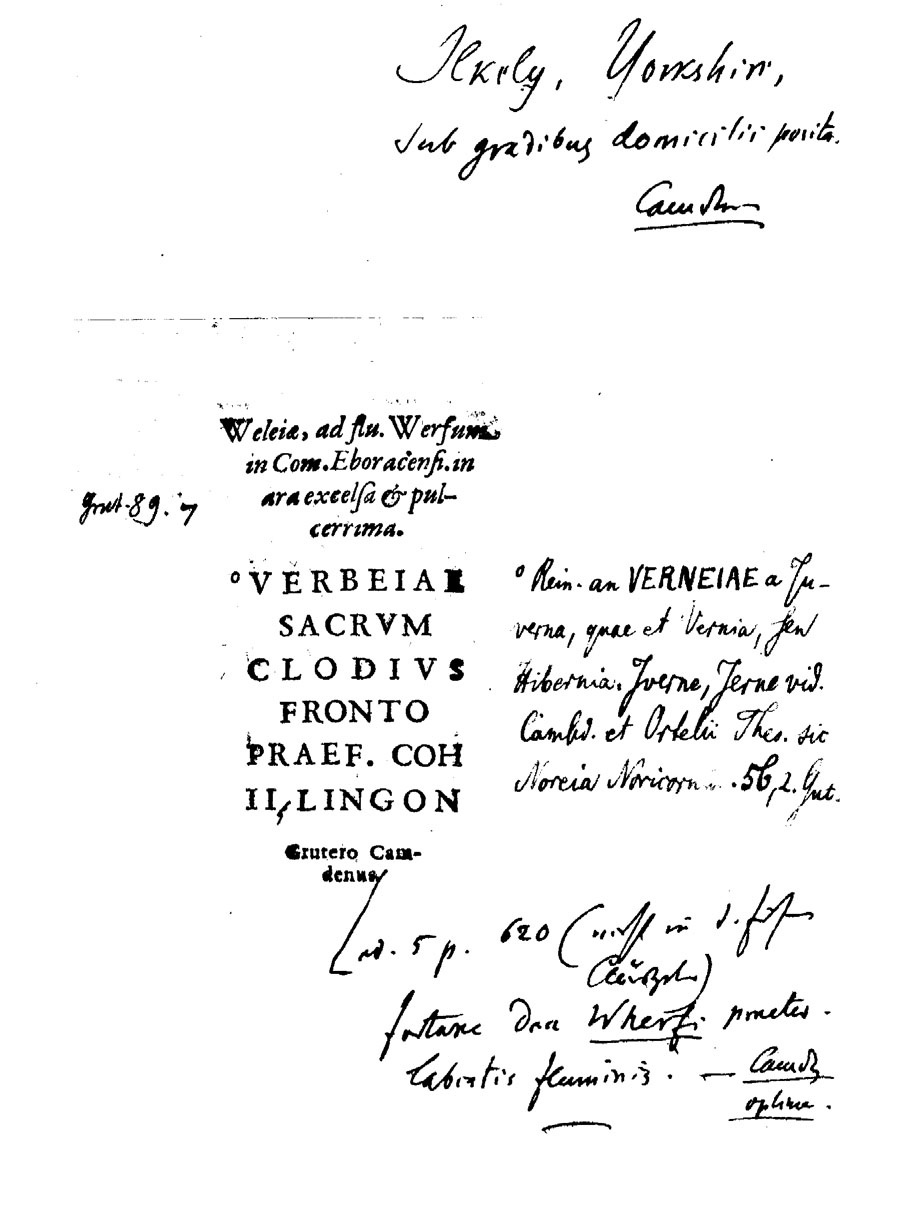 Ilkely, Yorkshire,
sub gradibus domicilii posita.
Camden
Weleiæ, ad flu. Werfum
in Com. Eboracẽnſi. in
ara excelſa & pul-
cerrima.
Grut. 89. 7
°VERBEIAE
SACRVM
CLODIVS
FRONTO
PRAEF. COH
II, LINGON
Grutero Cam-
denus
° Rein. an VERNEIAE a Ju-
verna, quae et Vernia, seu
Hibernia. Jverne, Jerne vid.
Cambd. et Ortelii Thes. sic
Noreia Noricorum 56, 2. Gut.
ed. 5 p. 620 (nicht in d.
fortune dea Wherfi praeter-
labentis fluminis. — Camd
optime.